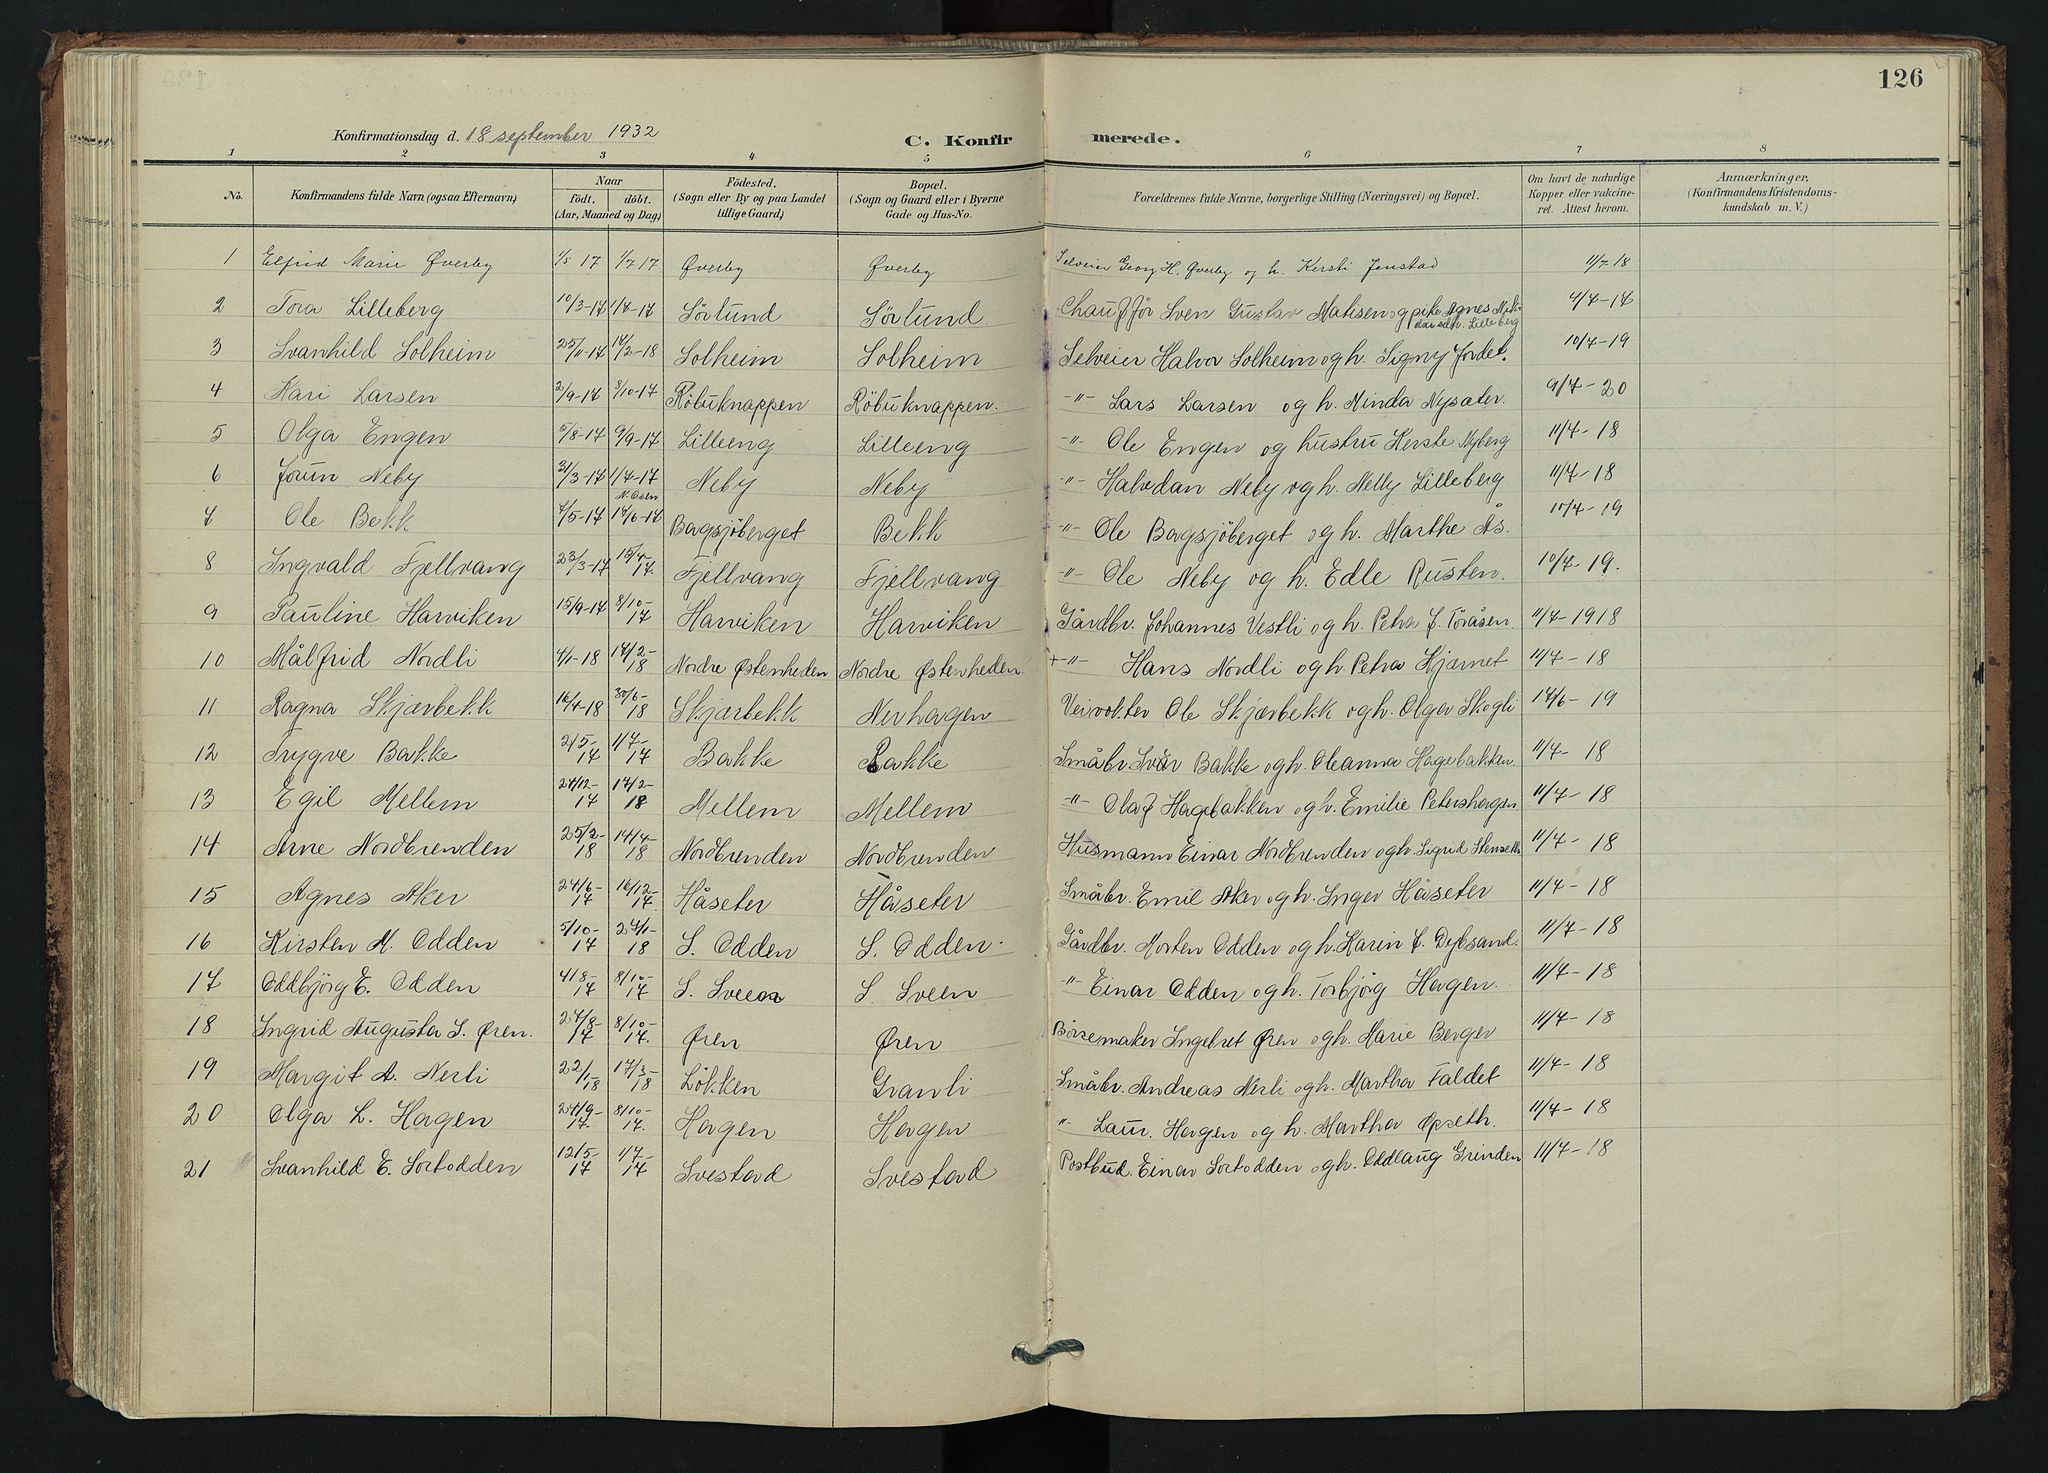 126
Konfirmationsdag d. 18 september 1932
C. Konfirmerede.
1 2 3 4 5 6 7 8
No. Konfirmandens fulde Navn (ogsaa Efternavn) Naar födt. döbt. (Aar, Maaned og Dag) Födested. (Sogn eller By og paa Landet tillige Gaard) Bopæl. (Sogn og Gaard eller i Byerne Gade og Hus-No. Forældrenes fulde Navne, borgerlige Stilling (Næringsvei) og Bopæl. Om havt de naturlige Kopper eller vakcineret. Attest herom. Anmærkninger. (Konfirmandens Kristendomskundskab m. V.)
1 Elfrid Marie Øverby 17 1/7 17 Øverby Øverby Selveier Georg H. Øverby og h. Kersti Jenstad 11/7-18
2 Tora Lilleberg 10/3-17 1/7-17 Sörlund Sörlund Chaufför Sven Gustav Matisen og pike Agnes Lilleberg
3 Svanhild Solheim 25/11-17 17/2-18 Solheim Solheim Selveier Halvor Solheim og h. Signy Jordet. 10/7-19
4 Kari Larsen 2/9-17 3/10-17 Röbuknappen Röbuknappen. -"- Lars Larsen og h. Minda Nysæter. 9/7-20
5 Olga Engen 5/8-17 9/9-17 Lilleeng Lilleeng -"- Ole Engen og hustru Nyberg 11/7-18
6 Jorun Neby 31/3-17 1/7-17 Neby Neby -"- Halvdan Neby og h. Nelly Lilleberg 11/7-18
7 Ole Bekk 7/5-17 N. Osen 17/6-17 Borgsjöberget Bekk -"- Ole Borgsjöberget og h. Marthe Ås. 10/7-19
8 Ingvald Fjellvang 23/3-17 15/4-17. Fjellvang Fjellvang -"- Ole Neby og h. Edle Rusten. 10/7-19.
9 Pauline Harviken 15/9-17 8/10-17 Harviken Harviken Gårdbr. Johannes Vestli og h. Petra f. Töråsen. 11/7-1918
10 Målfrid Nordli 4/1-18 17/2-18 Nordre Østenheden Nordre Østenheden +-"- Hans Nordli og h. Petra Kjærnet 11/7-18
11 Ragna Skjærbekk 16/4-18 30/6-18 Skjærbekk Nerhagen Veivokter Ole Skjærbekk og h. Olga Skogli 17/6-19
12 Trygve Bakke 2/5-17 1/7-17 Bakke Bakke Småbr. Bakke og h. Oleanna Hagebakken. 11/7-18
13 Egil Mellem 27/12-17 17/2-18 Mellem Mellem -"- Olaf Hagebakken og h. Emilie Petershagen 11/7-18
14 Arne Nordbrenden 25/2-18 14/4-18 Nordbrenden Nordbrenden Husmann Einar Nordbrenden og h. Sigrid Stenseth 11/7-18
15 Agnes Aker 24/6-17 16/12-17. Håseter Håseter Småbr. Emil Aker og h. Inger Håseter 11/7-18
16 Kirsten M. Odden 5/10-17 27/1-18 S. Odden S. Odden. Gårdbr. Morten Odden og h. Karin f. Dybsand. 11/7-18
17 Oddbjörg E. Odden 4/8-17 8/10-17 S. Sveen S. Sveen -"- Einar Odden og h. Torbjörg Hagen. 11/7-18
18 Ingrid Augusta S. Øren. 27/8-17 8/10-17. Øren Øren Börsemaker Ingebret Øren og h. Marie Berger 11/7-18
19 Margit A. Nerli 22/1-18 17/3-18 Lökken Granli Småbr. Andreas Nerli og h. Martha Faldet 11/7-18
20 Olga L. Hagen 24/9-17. 8/10-17. Hagen Hagen " Laur. Hagen og h. Martha Opseth. 11/7-18
21 Svanhild E. Sorteodden 12/5-17 1/7-17 Svestad Svestad Postbud. Einar Sorteodden og h. Oddlaug Grinden 11/7-18